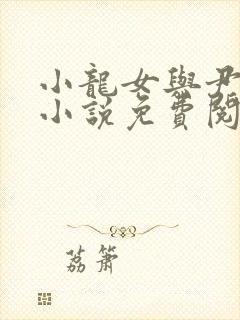 小龍女與尹
小說免費閱
荔簫